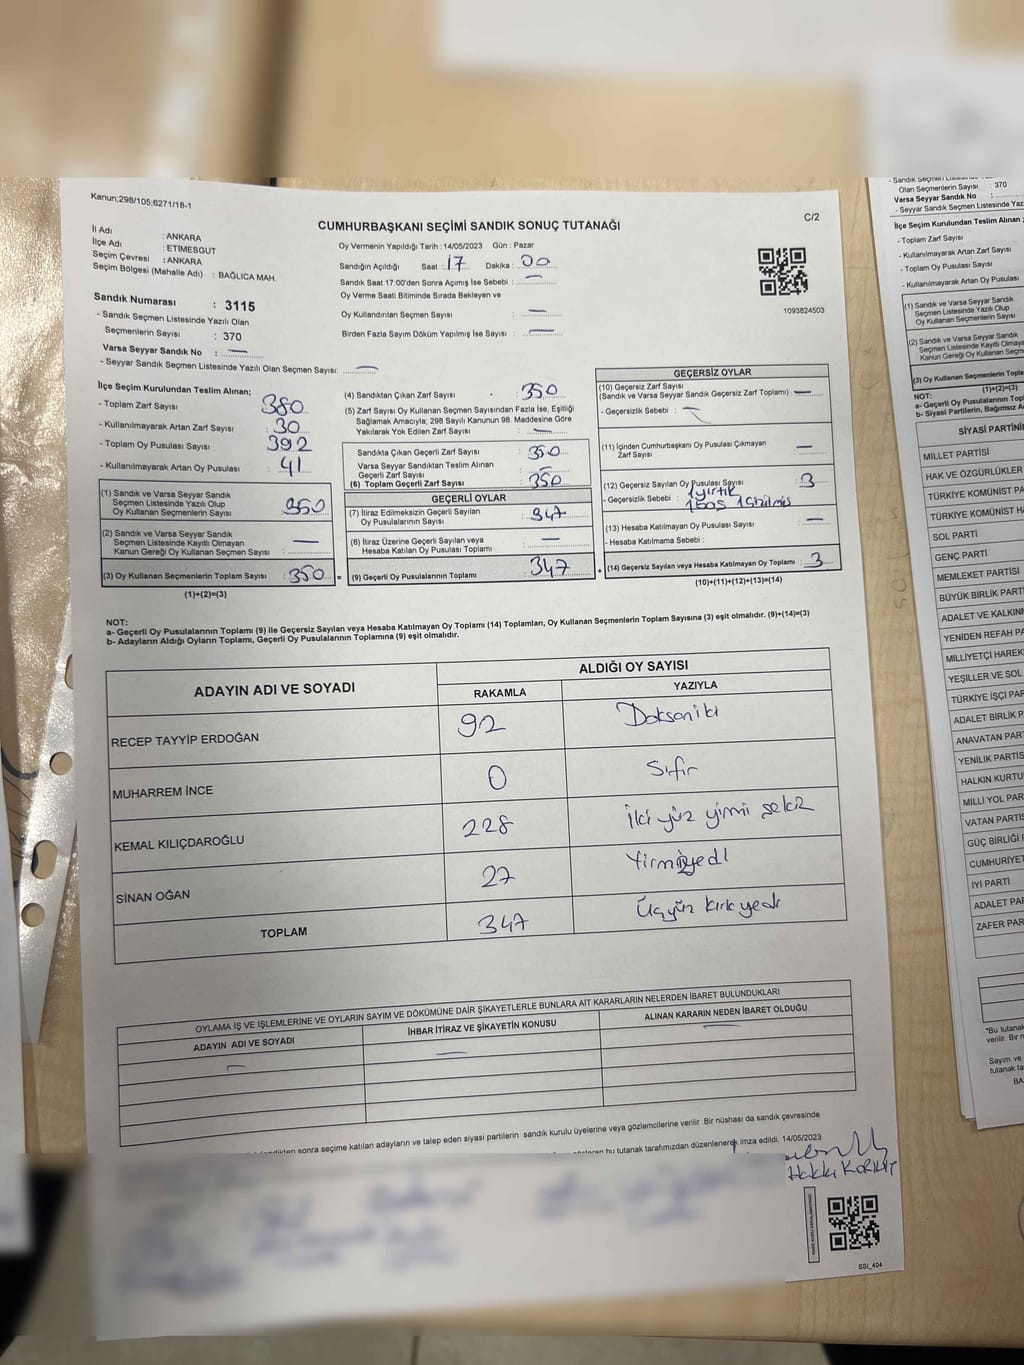 Kanun;298/105;6271/18-1
C/2
CUMHURBAŞKANI SEÇİMİ SANDIK SONUÇ TUTANAĞI
İl Adı : ANKARA
İlçe Adı : ETİMESGUT
Seçim Çevresi : ANKARA
Seçim Bölgesi (Mahalle Adı) : BAĞLICA MAH.
Sandık Numarası : 3115
- Sandık Seçmen Listesinde Yazılı Olan
Seçmenlerin Sayısı : 370
Varsa Seyyar Sandık No : —
- Seyyar Sandık Seçmen Listesinde Yazılı Olan Seçmen Sayısı: —
Oy Vermenin Yapıldığı Tarih : 14/05/2023 Gün : Pazar
Sandığın Açıldığı Saat : 17 Dakika : 00
Sandık Saat 17.00'den Sonra Açımış İse Sebebi : —
Oy Verme Saati Bitiminde Sırada Bekleyen ve
Oy Kullandırılan Seçmen Sayısı : —
Birden Fazla Sayım Döküm Yapılmış İse Sayısı : —
1093824503
İlçe Seçim Kurulundan Teslim Alınan;
- Toplam Zarf Sayısı : 380
- Kullanılmayarak Artan Zarf Sayısı : 30
- Toplam Oy Pusulası Sayısı : 392
- Kullanılmayarak Artan Oy Pusulası : 41
(1) Sandık ve Varsa Seyyar Sandık
Seçmen Listesinde Yazılı Olup
Oy Kullanan Seçmenlerin Sayısı : 350
(2) Sandık ve Varsa Seyyar Sandık
Seçmen Listesinde Kayıtlı Olmayan
Kanun Gereği Oy Kullanan Seçmen Sayısı : —
(3) Oy Kullanan Seçmenlerin Toplam Sayısı : 350 =
(1)+(2)=(3)
(4) Sandıktan Çıkan Zarf Sayısı : 350
(5) Zarf Sayısı Oy Kullanan Seçmen Sayısından Fazla İse, Eşitliği
Sağlamak Amacıyla; 298 Sayılı Kanunun 98. Maddesine Göre
Yakılarak Yok Edilen Zarf Sayısı : —
Sandıkta Çıkan Geçerli Zarf Sayısı : 350
Varsa Seyyar Sandıktan Teslim Alınan
Geçerli Zarf Sayısı : —
(6) Toplam Geçerli Zarf Sayısı : 350
GEÇERLİ OYLAR
(7) İtiraz Edilmeksizin Geçerli Sayılan
Oy Pusulalarının Sayısı : 347
(8) İtiraz Üzerine Geçerli Sayılan veya
Hesaba Katılan Oy Pusulası Toplamı : —
(9) Geçerli Oy Pusulalarının Toplamı : 347 +
GEÇERSİZ OYLAR
(10) Geçersiz Zarf Sayısı
(Sandık ve Varsa Seyyar Sandık Geçersiz Zarf Toplamı) : —
- Geçersizlik Sebebi : —
(11) İçinden Cumhurbaşkanı Oy Pusulası Çıkmayan
Zarf Sayısı : —
(12) Geçersiz Sayılan Oy Pusulası Sayısı : 3
- Geçersizlik Sebebi : 1 yırtık
1 boş 1 çizilmiş
(13) Hesaba Katılmayan Oy Pusulası Sayısı : —
- Hesaba Katılmama Sebebi :
(14) Geçersiz Sayılan veya Hesaba Katılmayan Oy Toplamı : 3
(10)+(11)+(12)+(13)=(14)
NOT:
a- Geçerli Oy Pusulalarının Toplamı (9) ile Geçersiz Sayılan veya Hesaba Katılmayan Oy Toplamı (14) Toplamları, Oy Kullanan Seçmenlerin Toplam Sayısına (3) eşit olmalıdır. (9)+(14)=(3)
b- Adayların Aldığı Oyların Toplamı, Geçerli Oy Pusulalarının Toplamına (9) eşit olmalıdır.
ADAYIN ADI VE SOYADI
ALDIĞI OY SAYISI
RAKAMLA YAZIYLA
RECEP TAYYİP ERDOĞAN 92 Doksan iki
MUHARREM İNCE 0 Sıfır
KEMAL KILIÇDAROĞLU 228 İki yüz yirmi sekiz
SİNAN OĞAN 27 Yirmiyedi
TOPLAM 347 Üçyüz kırk yedi
OYLAMA İŞ VE İŞLEMLERİNE VE OYLARIN SAYIM VE DÖKÜMÜNE DAİR ŞİKAYETLERLE BUNLARA AİT KARARLARIN NELERDEN İBARET BULUNDUKLARI
ADAYIN ADI VE SOYADI İHBAR İTİRAZ VE ŞİKAYETİN KONUSU ALINAN KARARIN NEDEN İBARET OLDUĞU
— — —
sonra seçime katılan adayların ve talep eden siyasi partilerin sandık kurulu üyelerine veya gözlemcilerine verilir. Bir nüshası da sandık çevresinde
bu tutanak tarafımızdan düzenlenerek imza edildi. 14/05/2023
Hakkı
SSI_404
Olan Seçmenlerin Sayısı : 370
Varsa Seyyar Sandık No :
- Seyyar Sandık Seçmen Listesinde Yaz
İlçe Seçim Kurulundan Teslim Alınan ;
- Toplam Zarf Sayısı
- Kullanılmayarak Artan Zarf Sayısı
- Toplam Oy Pusulası Sayısı
- Kullanılmayarak Artan Oy Pusulası
(1) Sandık ve Varsa Seyyar Sandık
Seçmen Listesinde Yazılı Olup
Oy Kullanan Seçmenlerin Sayısı
(2) Sandık ve Varsa Seyyar Sandık
Seçmen Listesinde Kayıtlı Olmaya
Kanun Gereği Oy Kullanan Seçmen
(3) Oy Kullanan Seçmenlerin Topla
(1)+(2)=(3)
NOT:
a- Geçerli Oy Pusulalarının Topl
b- Siyasi Partilerin, Bağımsız A
SİYASİ PARTİNİ
MİLLET PARTİSİ
HAK VE ÖZGÜRLÜKLER
TÜRKİYE KOMÜNİST PA
TÜRKİYE KOMÜNİST H
SOL PARTİ
GENÇ PARTİ
MEMLEKET PARTİSİ
BÜYÜK BİRLİK PART
ADALET VE KALKIN
YENİDEN REFAH PA
MİLLİYETÇİ HAREK
YEŞİLLER VE SOL
TÜRKİYE İŞÇİ PAR
ADALET BİRLİK P
ANAVATAN PAR
YENİLİK PARTİS
HALKIN KURTU
MİLLİ YOL PAR
VATAN PARTİS
GÜÇ BİRLİĞİ P
CUMHURİYET
İYİ PARTİ
ADALET PAR
ZAFER PAR
"Bu tutanak
verilir. Bir n
Sayım ve
tutanak ta
BA